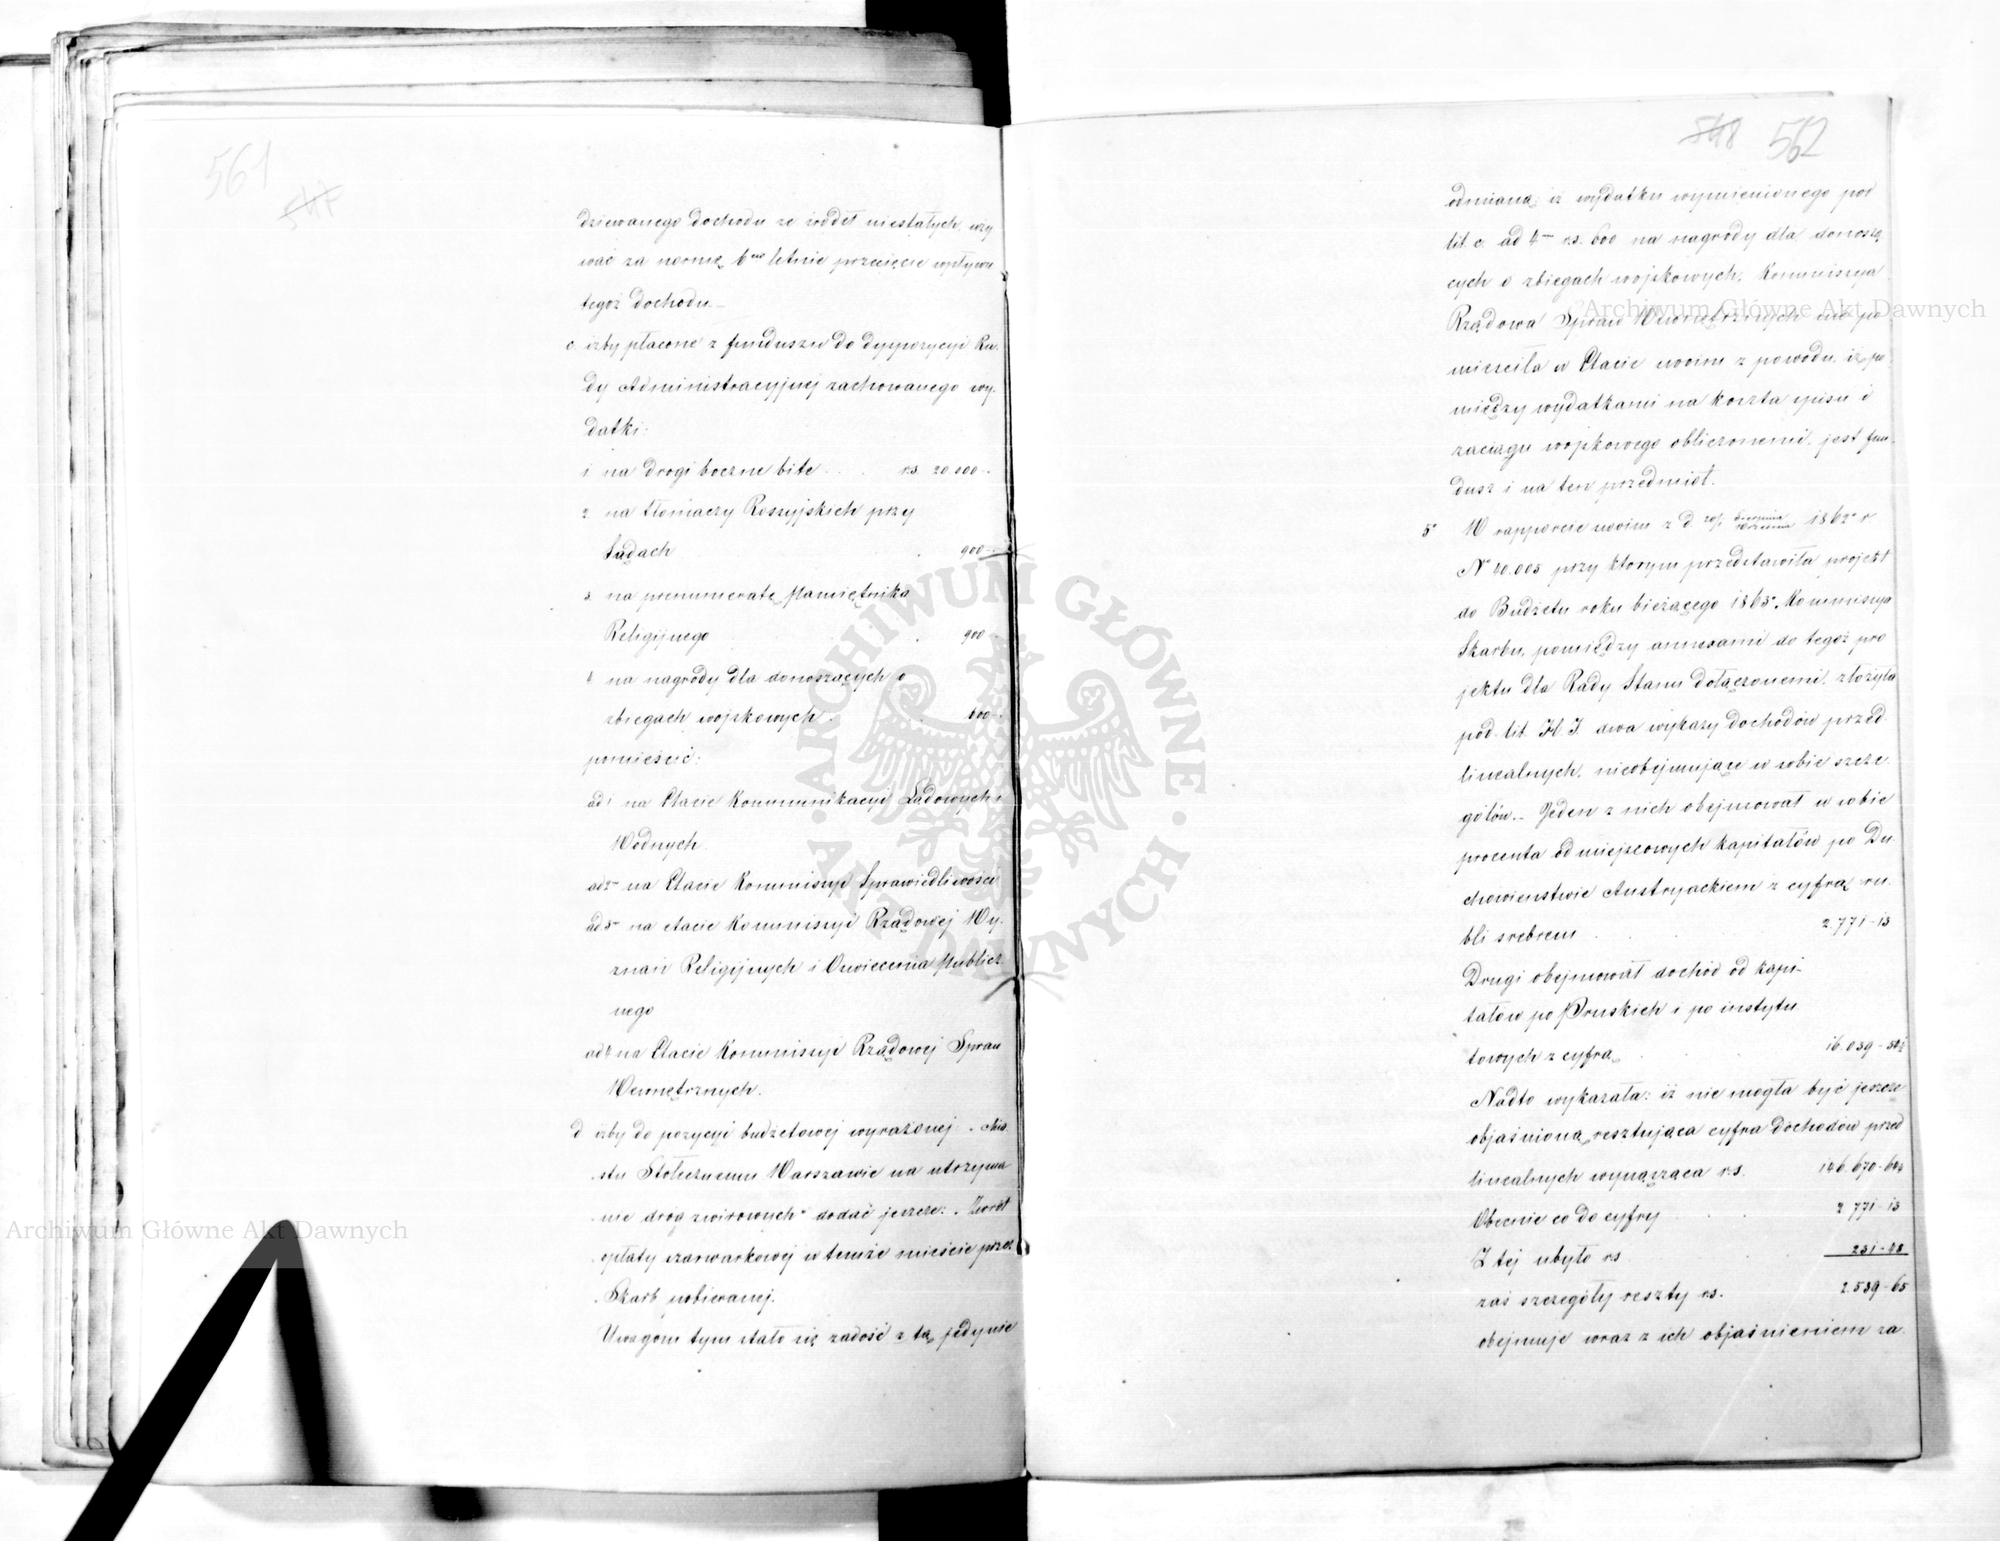 561
547
dziewanego dochodu ze źródeł niestałych, uży
wać za normę 6cio letnie przecięcie wpływu
tegoż dochodu.—
c. iżby płacone z funduszu do dyspozycyi Ra-
dy Administracyjnej zachowanego wy-
datki:
1 na drogi boczne bite . . . rs. 20 000 -
2. na tłomaczy Rossyjskich przy
Sądach . 900 -
3. na prenumeratę Pamiętnika
Religijnego . . 900 -
4 na nagrody dla donoszących o
zbiegach wojskowych . . 600 -
pomieścić:
ad 1 na Etacie Kommunikacyi Lądowych i
Wodnych.
ad 2o na Etacie Kommissyi Sprawiedliwości
ad 3o na etacie Kommissyi Rządowej Wy-
znań Religijnych i Oświecenia Publicz-
nego
ad 4 na Etacie Kommissyi Rządowej Spraw
Wewnętrznych.
d iżby do pozycyi budżetowej wyrażonej: „Mia
„stu Stołecznemu Warszawie na utrzyma
„nie dróg żwirowych" dodać jeszcze: „Zwrot
„opłaty szarwarkowej w temże mieście przez
„Skarb pobieranej.
Uwagom tym stało się zadość z tą jedynie
548 562
odmianą, iż wydatku wymienionego pod
lit. c. ad 4o rs. 600 na nagrody dla donoszą
cych o zbiegach wojskowych, Kommissya
Rządowa Spraw Wewnętrznych nie po-
mieściła w Etacie swoim z powodu, iż po-
między wydatkami na koszta spisu i
zaciągu wojskowego obliczonemi, jest fun-
dusz i na ten przedmiot.
5o W rapporcie swoim z d. Sierpnia Września 1862 r.
No 40.003 przy którym przedstawiła projekt
do Budżetu roku bieżącego 1863o, Kommissya
Skarbu, pomiędzy annexami do tegoż pro
jektu dla Rady Stanu dołączonemi, złożyła
pod lit. H. I. dwa wykazy dochodów przed-
linealnych, nieobejmujące w sobie szcze-
gółów.— Jeden z nich obejmował w sobie
procenta od miejscowych kapitałów po Du-
chowieństwie Austryackiem z cyfrą ru-
bli srebrem . . . 2.771 - 13
Drugi obejmował dochód od kapi-
tałów po Pruskich i po instytu
towych z cyfrą . . 16.039 - 50½
Nadto wykazała: iż nie mogła być jeszcze
objaśnioną resztująca cyfra dochodów przed
linealnych wynosząca rs. 146.670 - 60½
Obecnie co do cyfry . . 2 771 - 13
Z tej ubyło rs. . . 231 - 48
zaś szczegóły reszty rs. 2.539 - 65
obejmuje wraz z ich objaśnieniem za-
Archiwum Główne Akt Dawnych
Archiwum Główne Akt Dawnych
ARCHIWUM GŁÓWNE AKT DAWNYCH